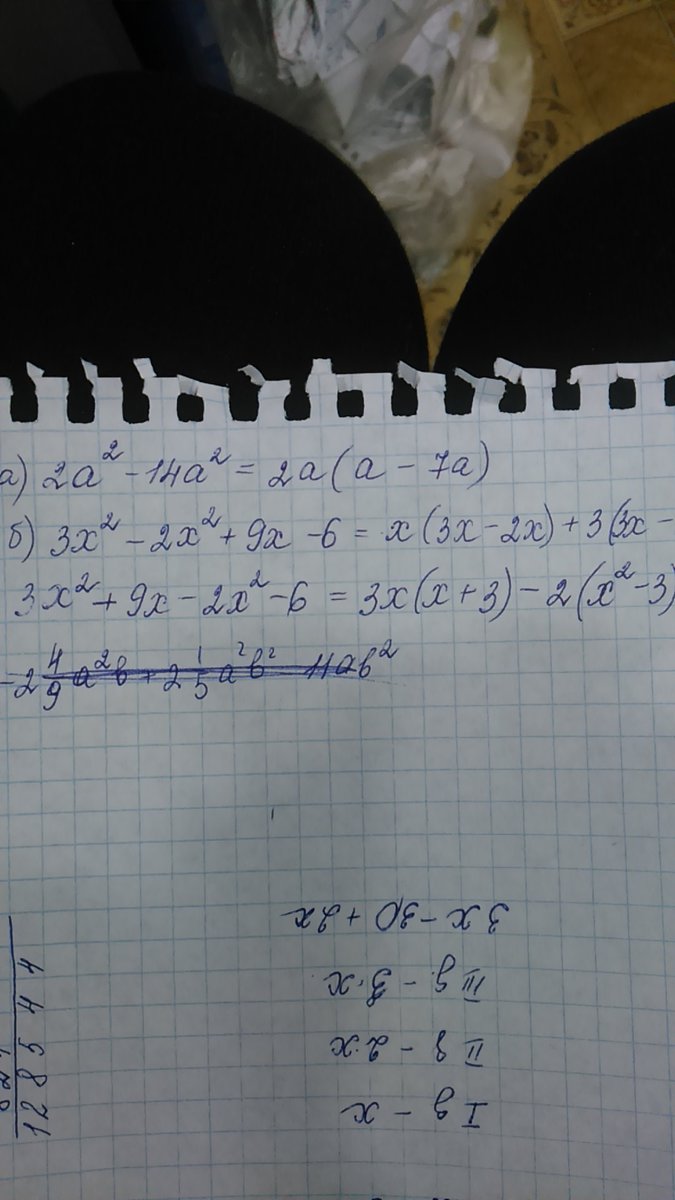 а) 2a² - 14a² = 2a(a - 7a)
б) 3x² - 2x² + 9x - 6 = x(3x - 2x) + 3(3x -
3x² + 9x - 2x² - 6 = 3x(x + 3) - 2(x² - 3)
-2 4/9 a²b + 2 1/5 a²b² - 11ab²
I д - x
II д - 2x
III д - 3x
3x - 30 + 2x
128544